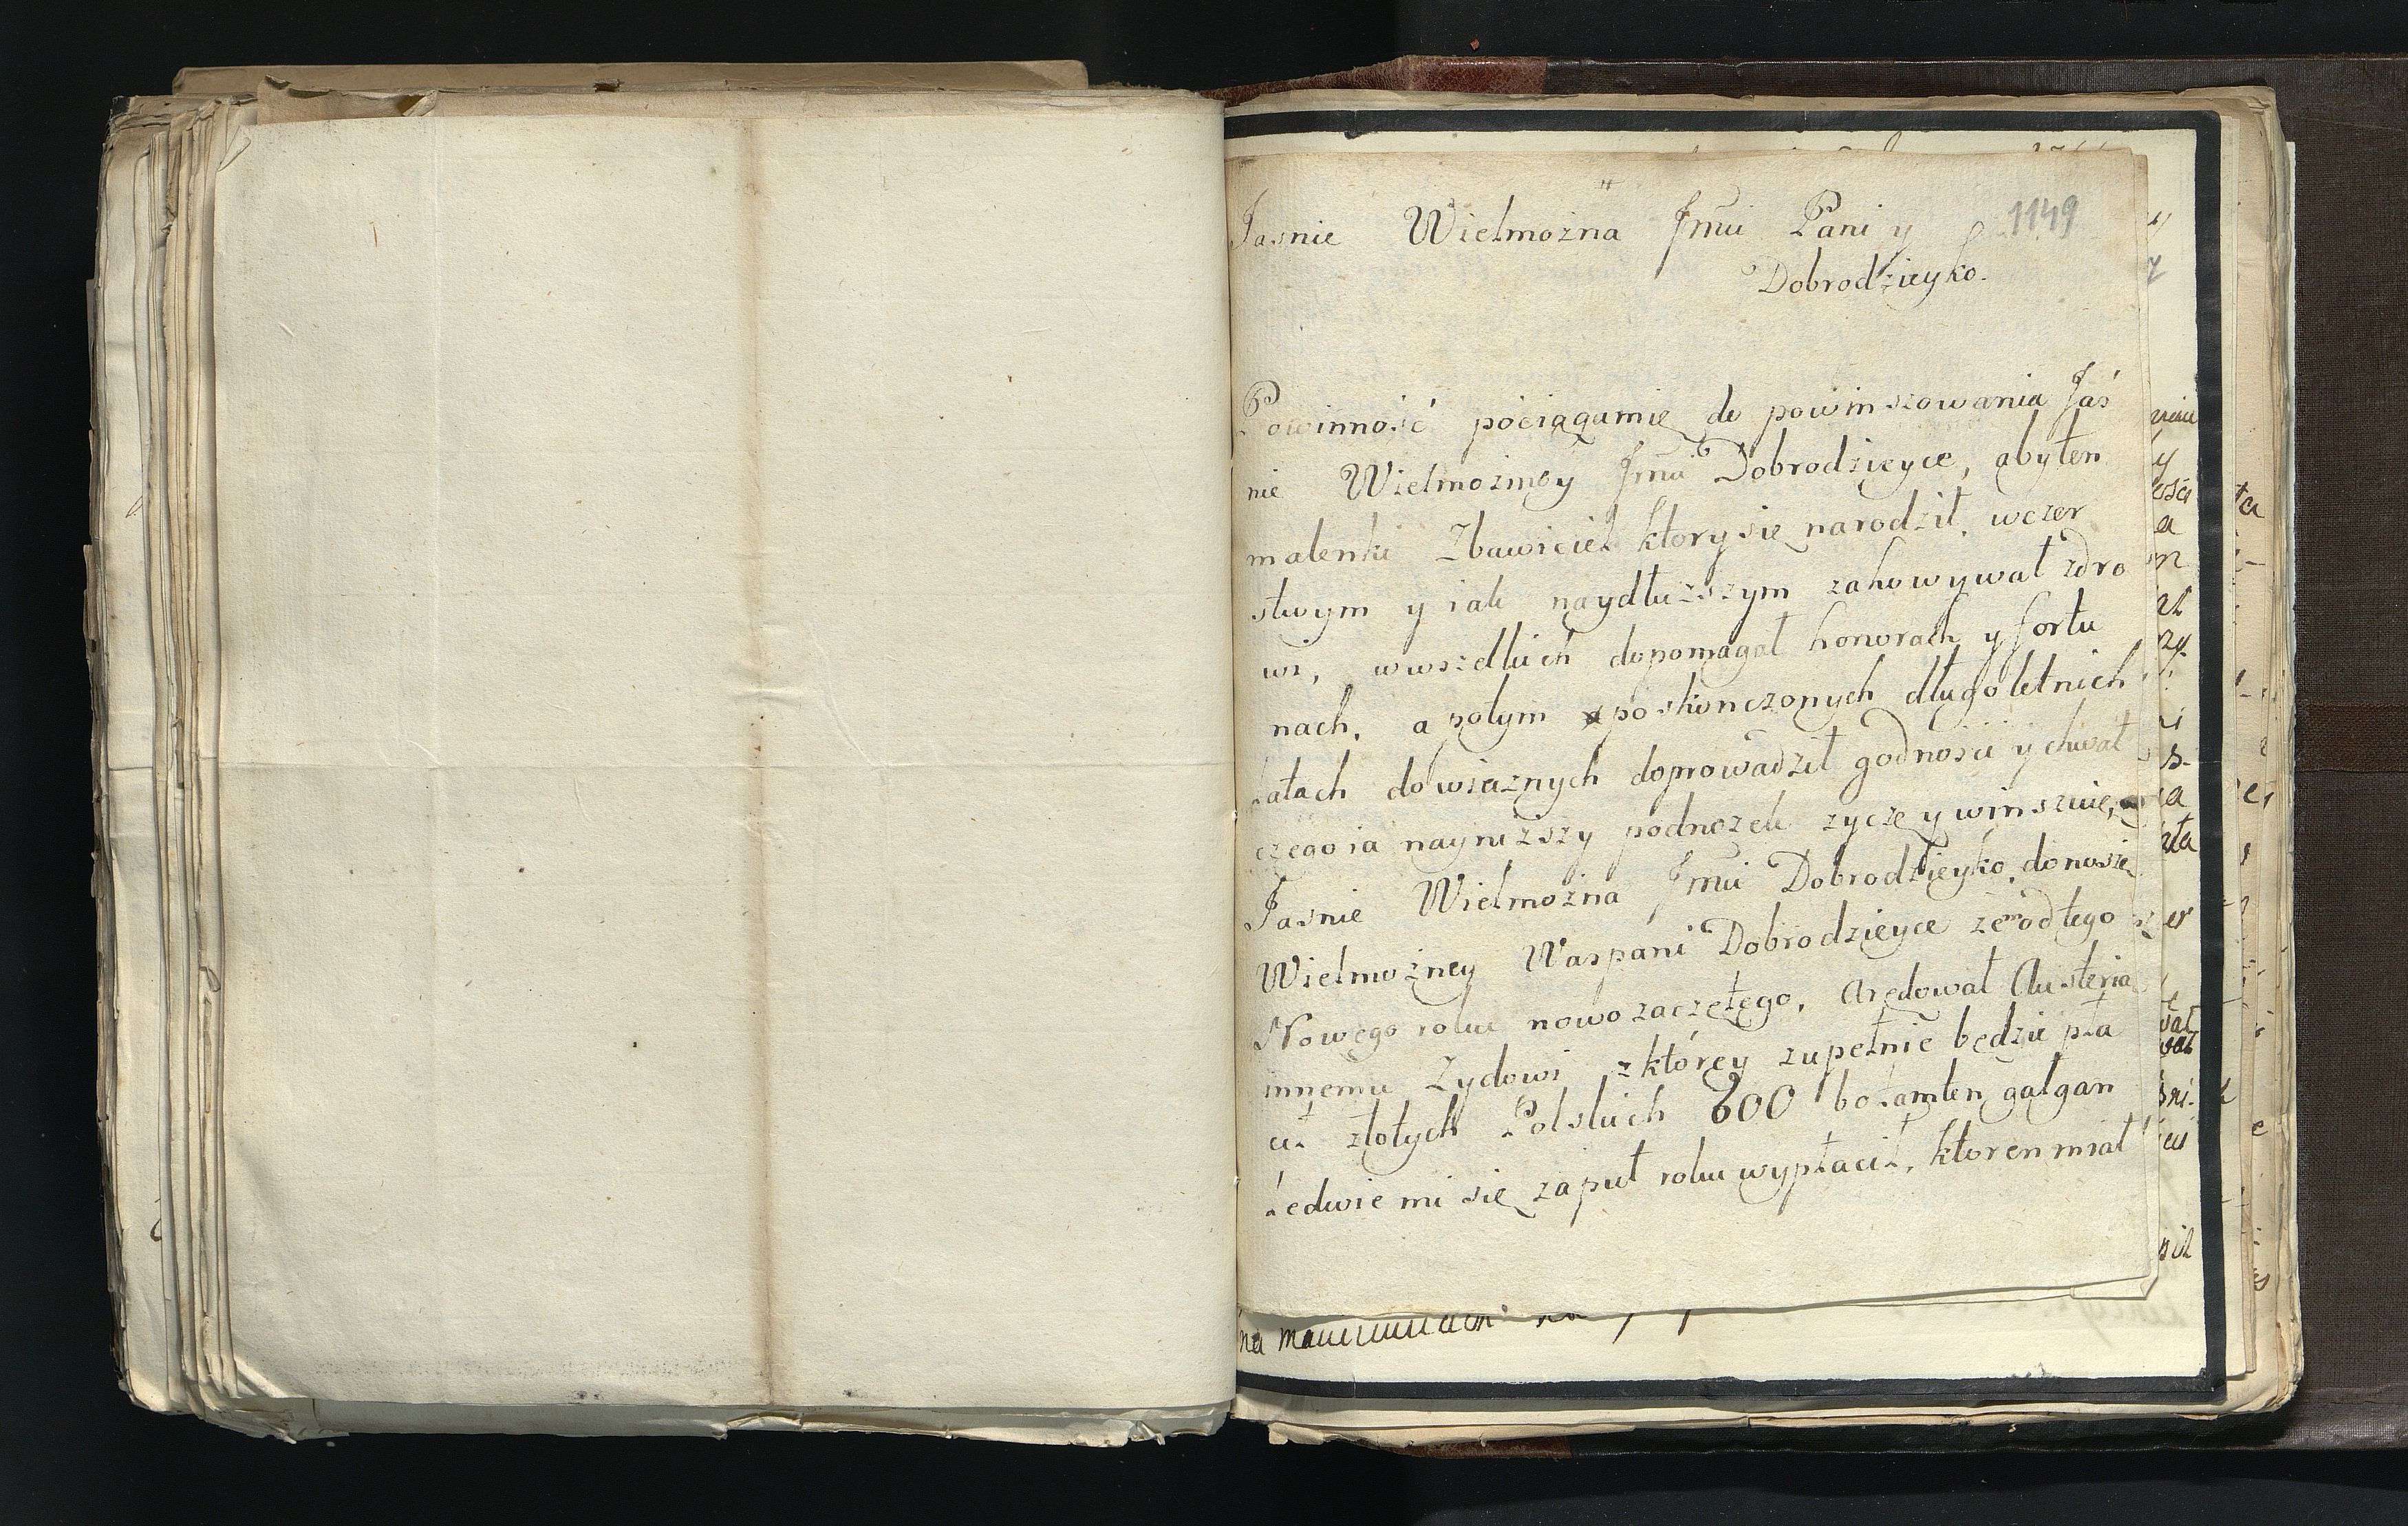 1149
Jasnie Wielmożna Jmći Pani y
Dobrodzieyko.
Powinność pociągamię do powinszowania Jaś
nie Wielmożney Jmći Dobrodzieyce, abyten
malenki Zbawiciel ktorysię narodził, wczer
stwym y iak naydłuższym zahowywał zdro
wi, wwszelkich dopomagał honorach y fortu
nach, a potym poskonczonych długoletnich
latach dowiecznych doprowadził godności y chwał
czegoia nayniższy podnożek zyczę y winszuię,
Jasnie Wielmożna Jmći Dobrodzieyko, donoszę
Wielmożney Waspani Dobrodzieyce żemodtego
Nowego roku nowozaczętego, Arędował Austerią
innemu Zydowi zktórey zupełnie będzie pła
cił złotych Polskich 600 botamten gałgan
Ledwie mi się zapuł roku wypłacił, ktoren miał